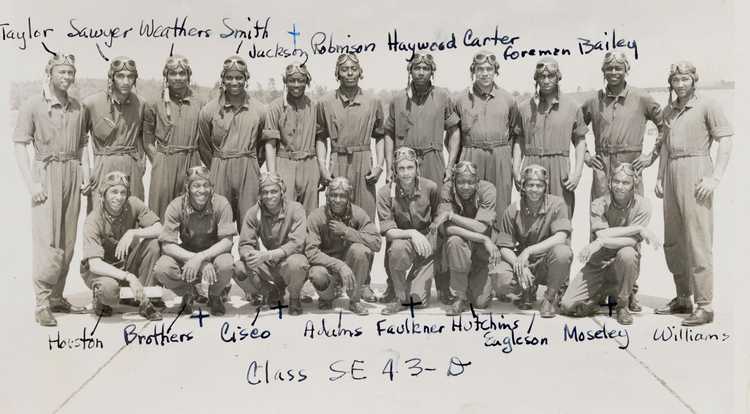 Taylor Sawyer Weathers Smith
Jackson Robinson Haywood Carter
Foreman Bailey
Houston Brothers Cisco Adams Faulkner Hutchins
Eagleson Moseley Williams
Class SE 43-D